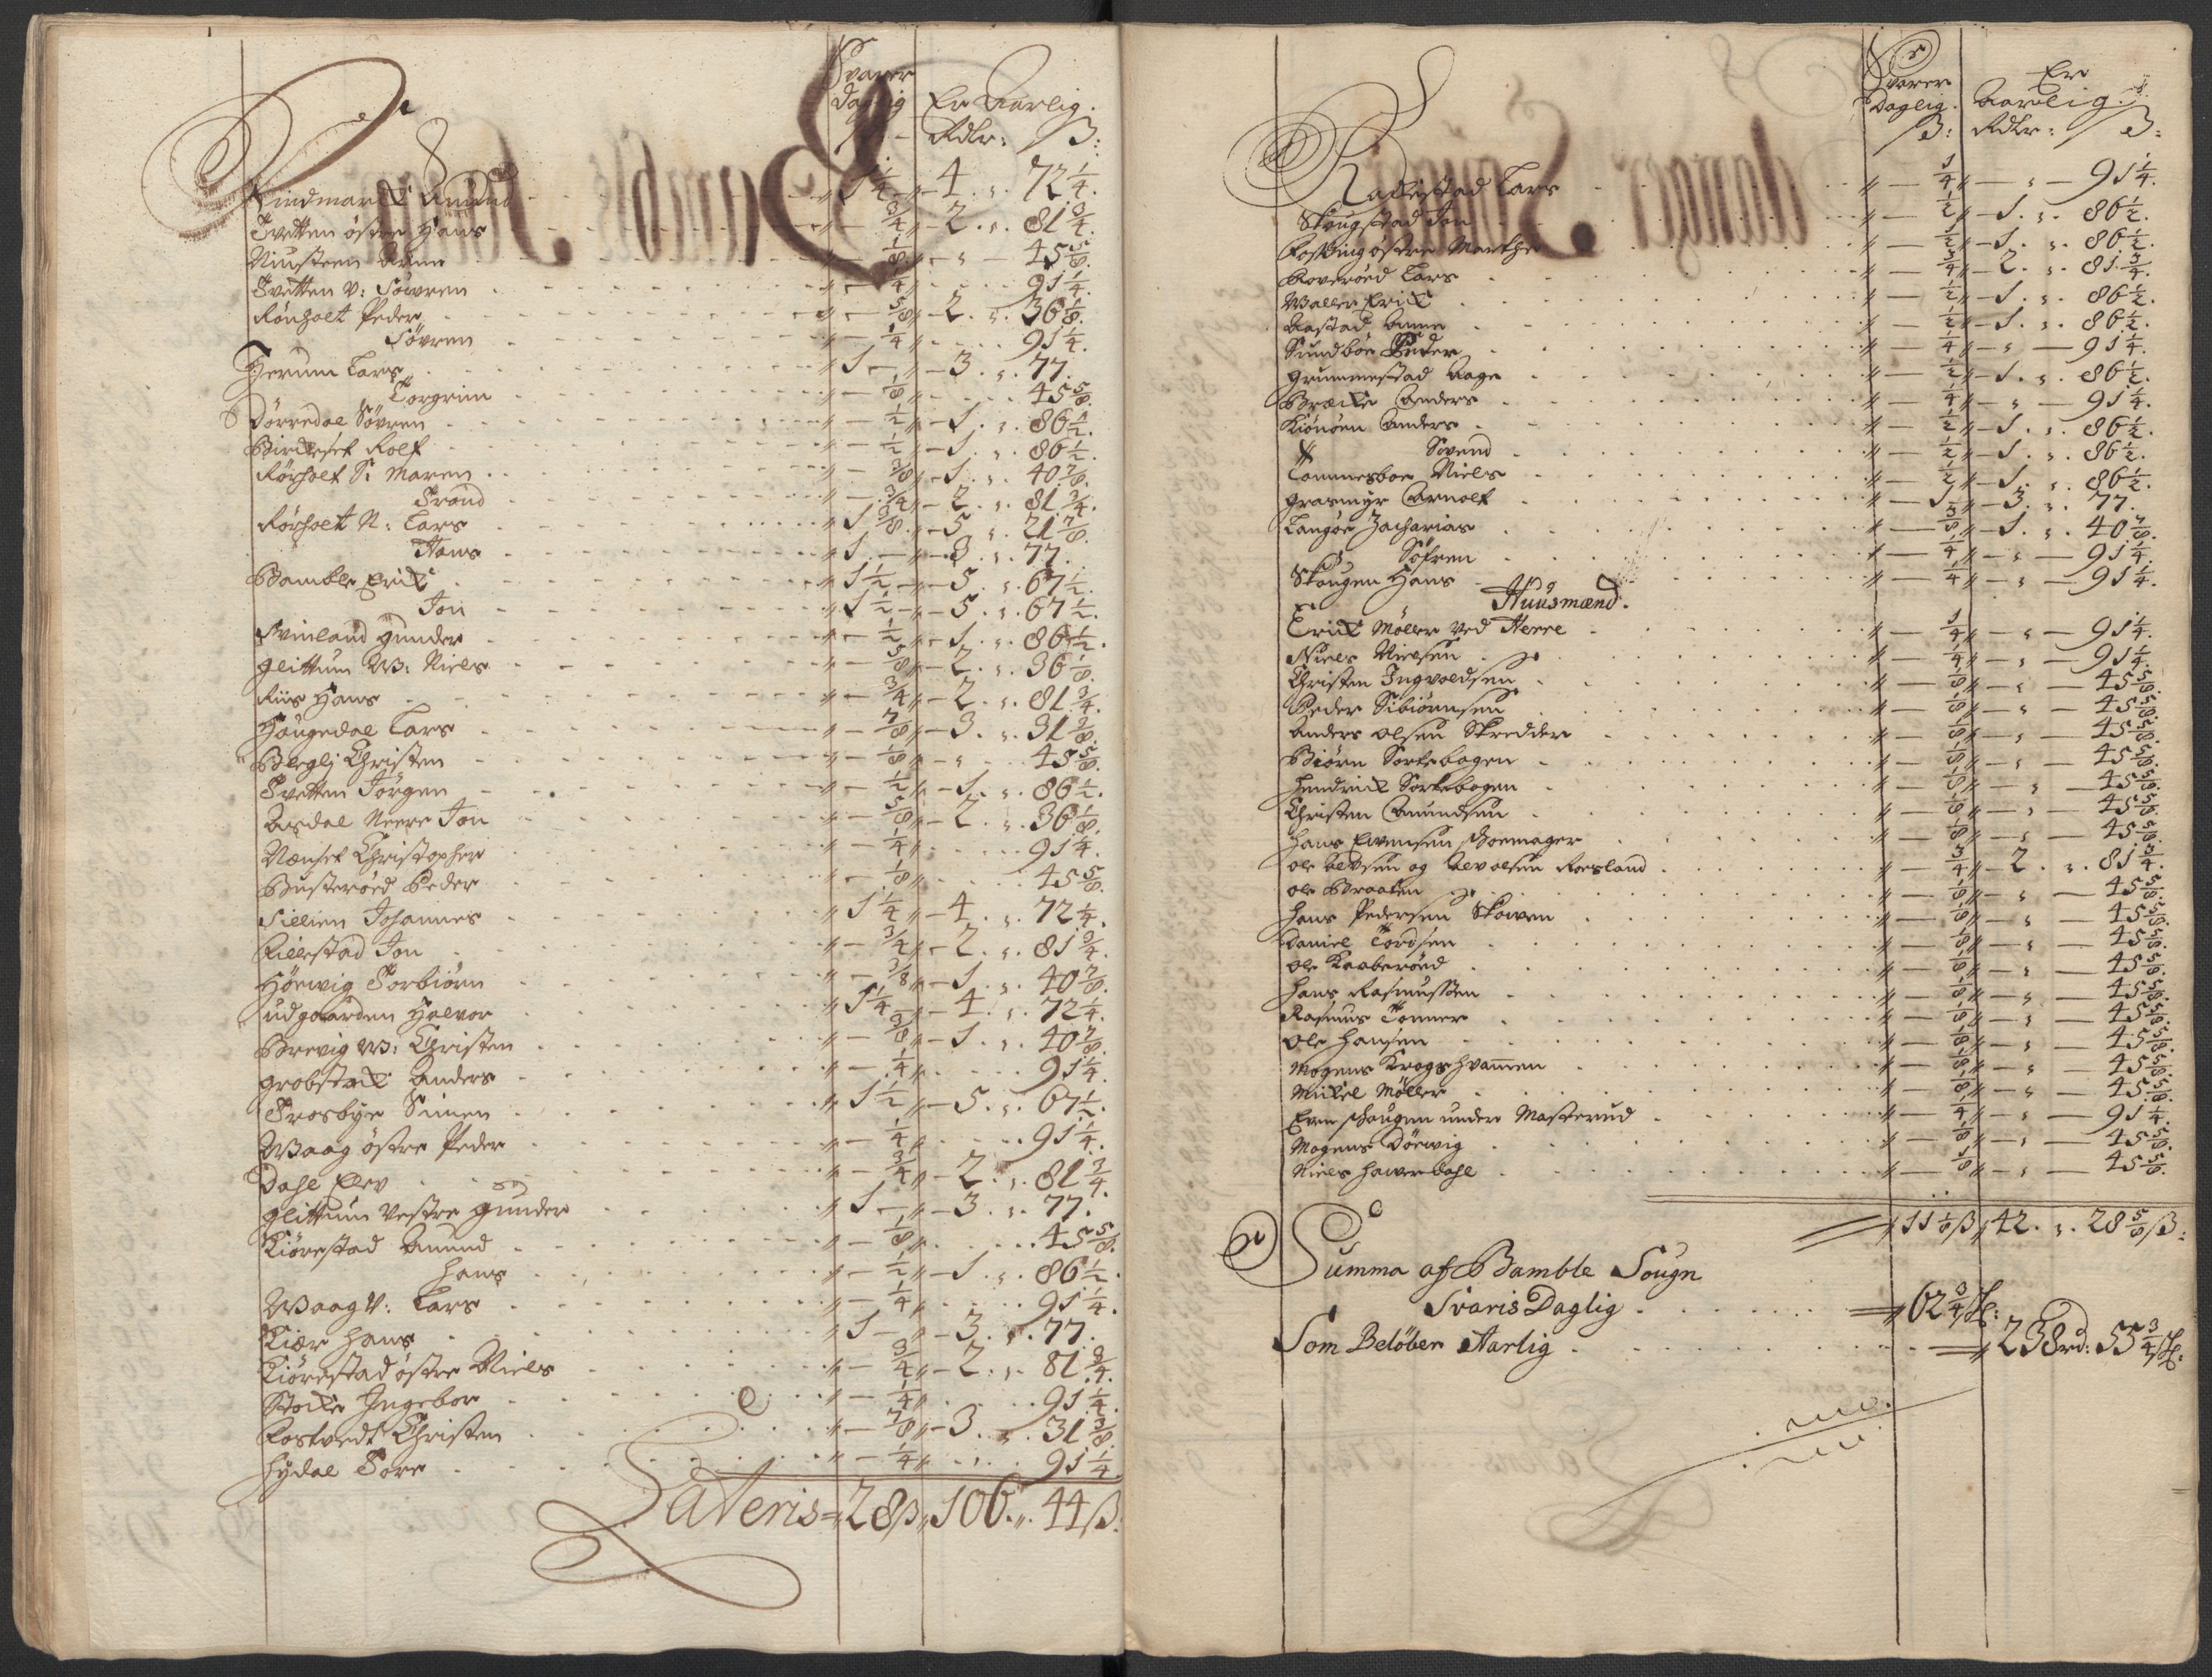 Svarer
Daglig Er Aarlig.
ß - Rdlr: ß:
Findmarck Amund " 1¼ " 4 " 72¼.
Tvetten östre Hans " — ¾ " 2 " 81¾.
Niusteen Anne " — ⅛ " 45⅝.
Tvetten V: Söwren " — ¼ " 91¼.
Rönholt Peder " — ⅝ " 2 " 36⅛.
Sövren " — ¼ " 91¼.
Herum Lars " 1 — " 3 " 77.
Torgrim " — ⅛ " 45⅝.
Dörredal Sövren " — ½ " 1 " 86½.
Birckeset Rolf " — ½ " 1 " 86½.
Rörholt S: Maren " — ⅜ " 1 " 40⅞.
Trond " — ¾ " 2 " 81¾.
Rörholt N: Lars " 1⅜ " 5 " 21⅞.
Hans " 1 — " 3 " 77.
Bamble Erick " 1½ " 5 " 67½.
Jon " 1½ " 5 " 67½.
Svinland Gunder " — ½ " 1 " 86½.
Glittum W: Niels " — ⅝ " 2 " 36⅛.
Riis Hans " — ¾ " 2 " 81¾.
Haugedal Lars " — ⅞ " 3 " 31⅜.
Blegli Christen " — ⅛ " 45⅝.
Tvetten Jörgen " — ½ " 1 " 86½.
Asdal Neere Jon " — ⅝ " 2 " 36⅛.
Nenset Christopher " — ¼ " 91¼.
Busteröed Peder " — ⅛ " 45⅝.
Sillien Johannes " 1¼ " 4 " 72¼.
Rillestad Jon " — ¾ " 2 " 81¾.
Höewig Torbiörn " — ⅜ " 1 " 40⅞.
udgaarden Halvor " 1¼ " 4 " 72¼.
Brevig W: Christen " — ⅜ " 1 " 40⅞.
Grobstock Anders " — ¼ " 91¼.
Trosbye Simen " 1½ " 5 " 67½.
Waag östre Peder " — ¼ " 91¼.
Dahl Elev " — ¾ " 2 " 81¾.
Glittum Vestre Gunder " 1 — " 3 " 77.
Kiörestad Amund " — ⅛ " 45⅝.
Hans " — ½ " 1 " 86½.
Waag V: Lars " — ¼ " 91¼.
Kiær Hans " 1 — " 3 " 77.
Kiörestad östre Niels " — ¾ " 2 " 81¾.
Stocke Ingebor " — ¼ " 91¼.
Rostvedt Christen " — ⅞ " 3 " 31⅜.
Hydal Tore " — ¼ " 91¼.
Lateris = 28 ß " 106 " 44 ß.
Svarer Er
Daglig. Aarlig.
ß: Rdlr: ß:
Rackestad Lars " — ¼ " — 91¼.
Skougstad Jon " — ½ " 1 " 86½.
Fosting östre Marthe " — ½ " 1 " 86½.
Boveröed Lars " — ¾ " 2 " 81¾.
Waller Erick " — ½ " 1 " 86½.
Aastad Anne " — ½ " 1 " 86½.
Sundboe Peder " — ¼ " — 91¼.
Grummestad Aage " — ½ " 1 " 86½.
Bræcke Anders " — ¼ " — 91¼.
Kiönöen Anders " — ½ " 1 " 86½.
Svend " — ½ " 1 " 86½.
Tonnesboe Niels " — ½ " 1 " 86½.
Grasmyr Arnolt " 1 " 3 " 77.
Langöe Zacharias " — ⅜ " 1 " 40⅞.
Söfren " — ¼ " — 91¼.
Skougen Hans " — ¼ " — 91¼.
Huusmænd.
Erick Möller ved Herre " — ¼ " — 91¼.
Niels Nielsen " — ¼ " — 91¼.
Christen Ingvoldsen " — ⅛ " — 45⅝.
Peder Sibiörnsen " — ⅛ " — 45⅝.
Anders Olsen Skredder " — ⅛ " — 45⅝.
Biörn Sortebogen " — ⅛ " — 45⅝.
Hendrick Sortebogen " — ⅛ " — 45⅝.
Christen Amundsen " — ⅛ " — 45⅝.
Hans Evensen Schoemager " — ⅛ " — 45⅝.
Ole Alvsen og Alv Olsen Roesland " — ¾ " 2 " 81¾.
Ole Braaten " — ⅛ " — 45⅝.
Hans Pedersen Skowen " — ⅛ " — 45⅝.
Daniel Tordsen " — ⅛ " — 45⅝.
Ole Kaaberöed " — ⅛ " — 45⅝.
Hans Rasmussen " — ⅛ " — 45⅝.
Rasmus Tonner " — ⅛ " — 45⅝.
Ole Hansen " — ⅛ " — 45⅝.
Mogens Krogshvammen " — ⅛ " — 45⅝.
Mickel Möller " — ⅛ " — 45⅝.
Even schougen under Masterud " — ¼ " — 91¼.
Mogens Döevig " — ⅛ " — 45⅝.
Niels Hawerdahl " — ⅛ " — 45⅝.
" 11⅛ ß " 42 " 28⅝ ß:
Summa af Bamble Sougn
Svaris Daglig = 62¾ sk:
Som Belöber Aarlig = 238 rd: 55¾ sk: